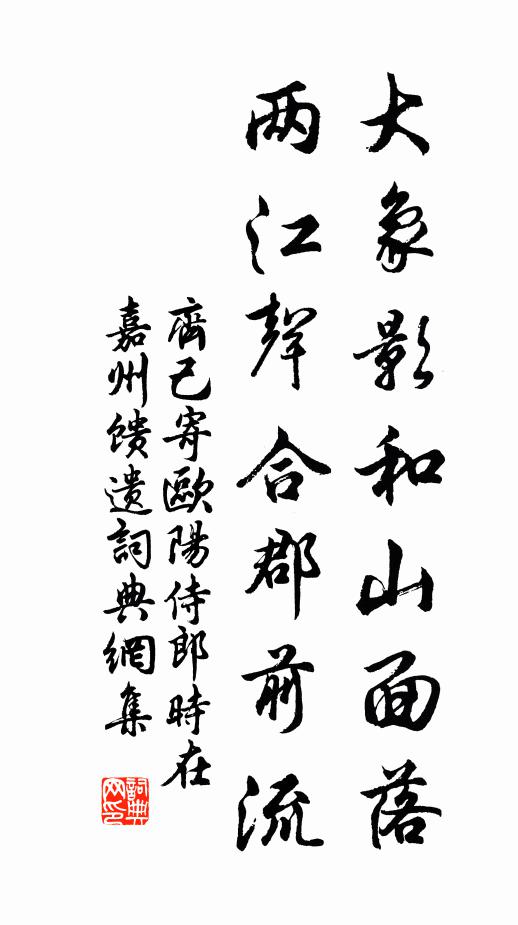 大象影和山面落
两江聲合郡前流
齊己寄歐陽侍郎時在
嘉州馈遗詞典網集
詞典网印